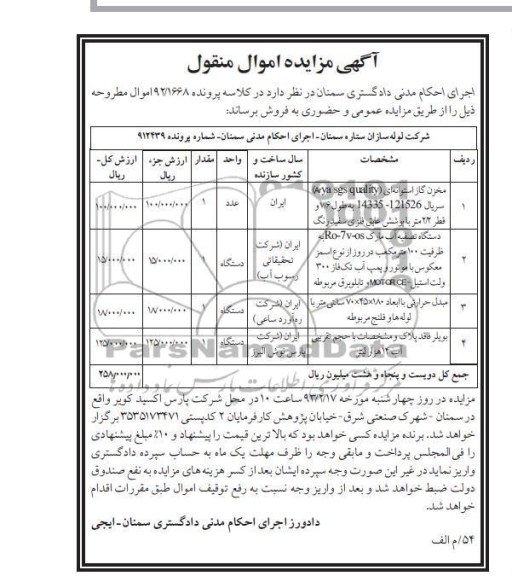 آگهی مزایده اموال منقول
اجرای احکام مدنی دادگستری سمنان در نظر دارد در کلاسه پرونده ۹۲/۱۶۶۸ اموال مطروحه
ذیل را از طریق مزایده عمومی و حضوری به فروش برساند:
شرکت لوله سازان ستاره سمنان - اجرای احکام مدنی سمنان - شماره پرونده ۹۱۲۴۳۹
ردیف مشخصات سال ساخت و کشور سازنده واحد مقدار ارزش جزء، ریال ارزش کل - ریال
۱ مخزن گاز استوانه‌ای (Arya sgs quality) ایران عدد ۱ ۱۰۰/۰۰۰/۰۰۰ ۱۰۰/۰۰۰/۰۰۰
سریال 121526-14335 به طول ۷/۶ و
قطر ۲/۲ متر با پوشش عایق فلزی سفید رنگ
۲ دستگاه تصفیه آب مارک Ro-7v-os به ایران (شرکت تحقیقاتی رسوب آب) دستگاه ۱ ۱۵/۰۰۰/۰۰۰ ۱۵/۰۰۰/۰۰۰
ظرفیت ۱۰۰ مترمکعب در روز از نوع اسمز
معکوس با موتور و پمپ آب تک فاز ۳۰۰
ولت استیل MOTORICE، تابلو برق مربوطه
۳ مبدل حرارتی با ابعاد ۱۸۰×۴۵×۷۰ سانتی متر با ایران (شرکت ره‌آورد ساعی) دستگاه ۱ ۱۸/۰۰۰/۰۰۰ ۱۸/۰۰۰/۰۰۰
لوله‌ها و فلنج مربوطه
۴ بویلر فاقد پلاک و مشخصات با حجم تقریبی ایران (شرکت پارس پوش البرز دستگاه ۱ ۱۲۵/۰۰۰/۰۰۰ ۱۲۵/۰۰۰/۰۰۰
آب ۳ هزار لیتر
جمع کل دویست و پنجاه و هشت میلیون ریال ۲۵۸/۰۰۰/۰۰۰
مزایده در روز چهارشنبه مورخه ۹۳/۲/۱۷ ساعت ۱۰ در محل شرکت پارس اکسید کویر واقع
در سمنان - شهرک صنعتی شرق - خیابان پژوهش کارفرمایان ۲ کدپستی ۳۵۳۵۱۷۳۴۷۱ برگزار
خواهد شد. برنده مزایده کسی خواهد بود که بالاترین قیمت را پیشنهاد و ۱۰٪ مبلغ پیشنهادی
را فی المجلس پرداخت و مابقی وجه را ظرف مهلت یک ماه به حساب سپرده دادگستری
واریز نماید در غیر این صورت وجه سپرده ایشان بعد از کسر هزینه‌های مزایده به نفع صندوق
دولت ضبط خواهد شد و بعد از واریز وجه نسبت به رفع توقیف اموال طبق مقررات اقدام
خواهد شد.
دادورز اجرای احکام مدنی دادگستری سمنان - ایجی
۵۴/م الف
ParsNamadData